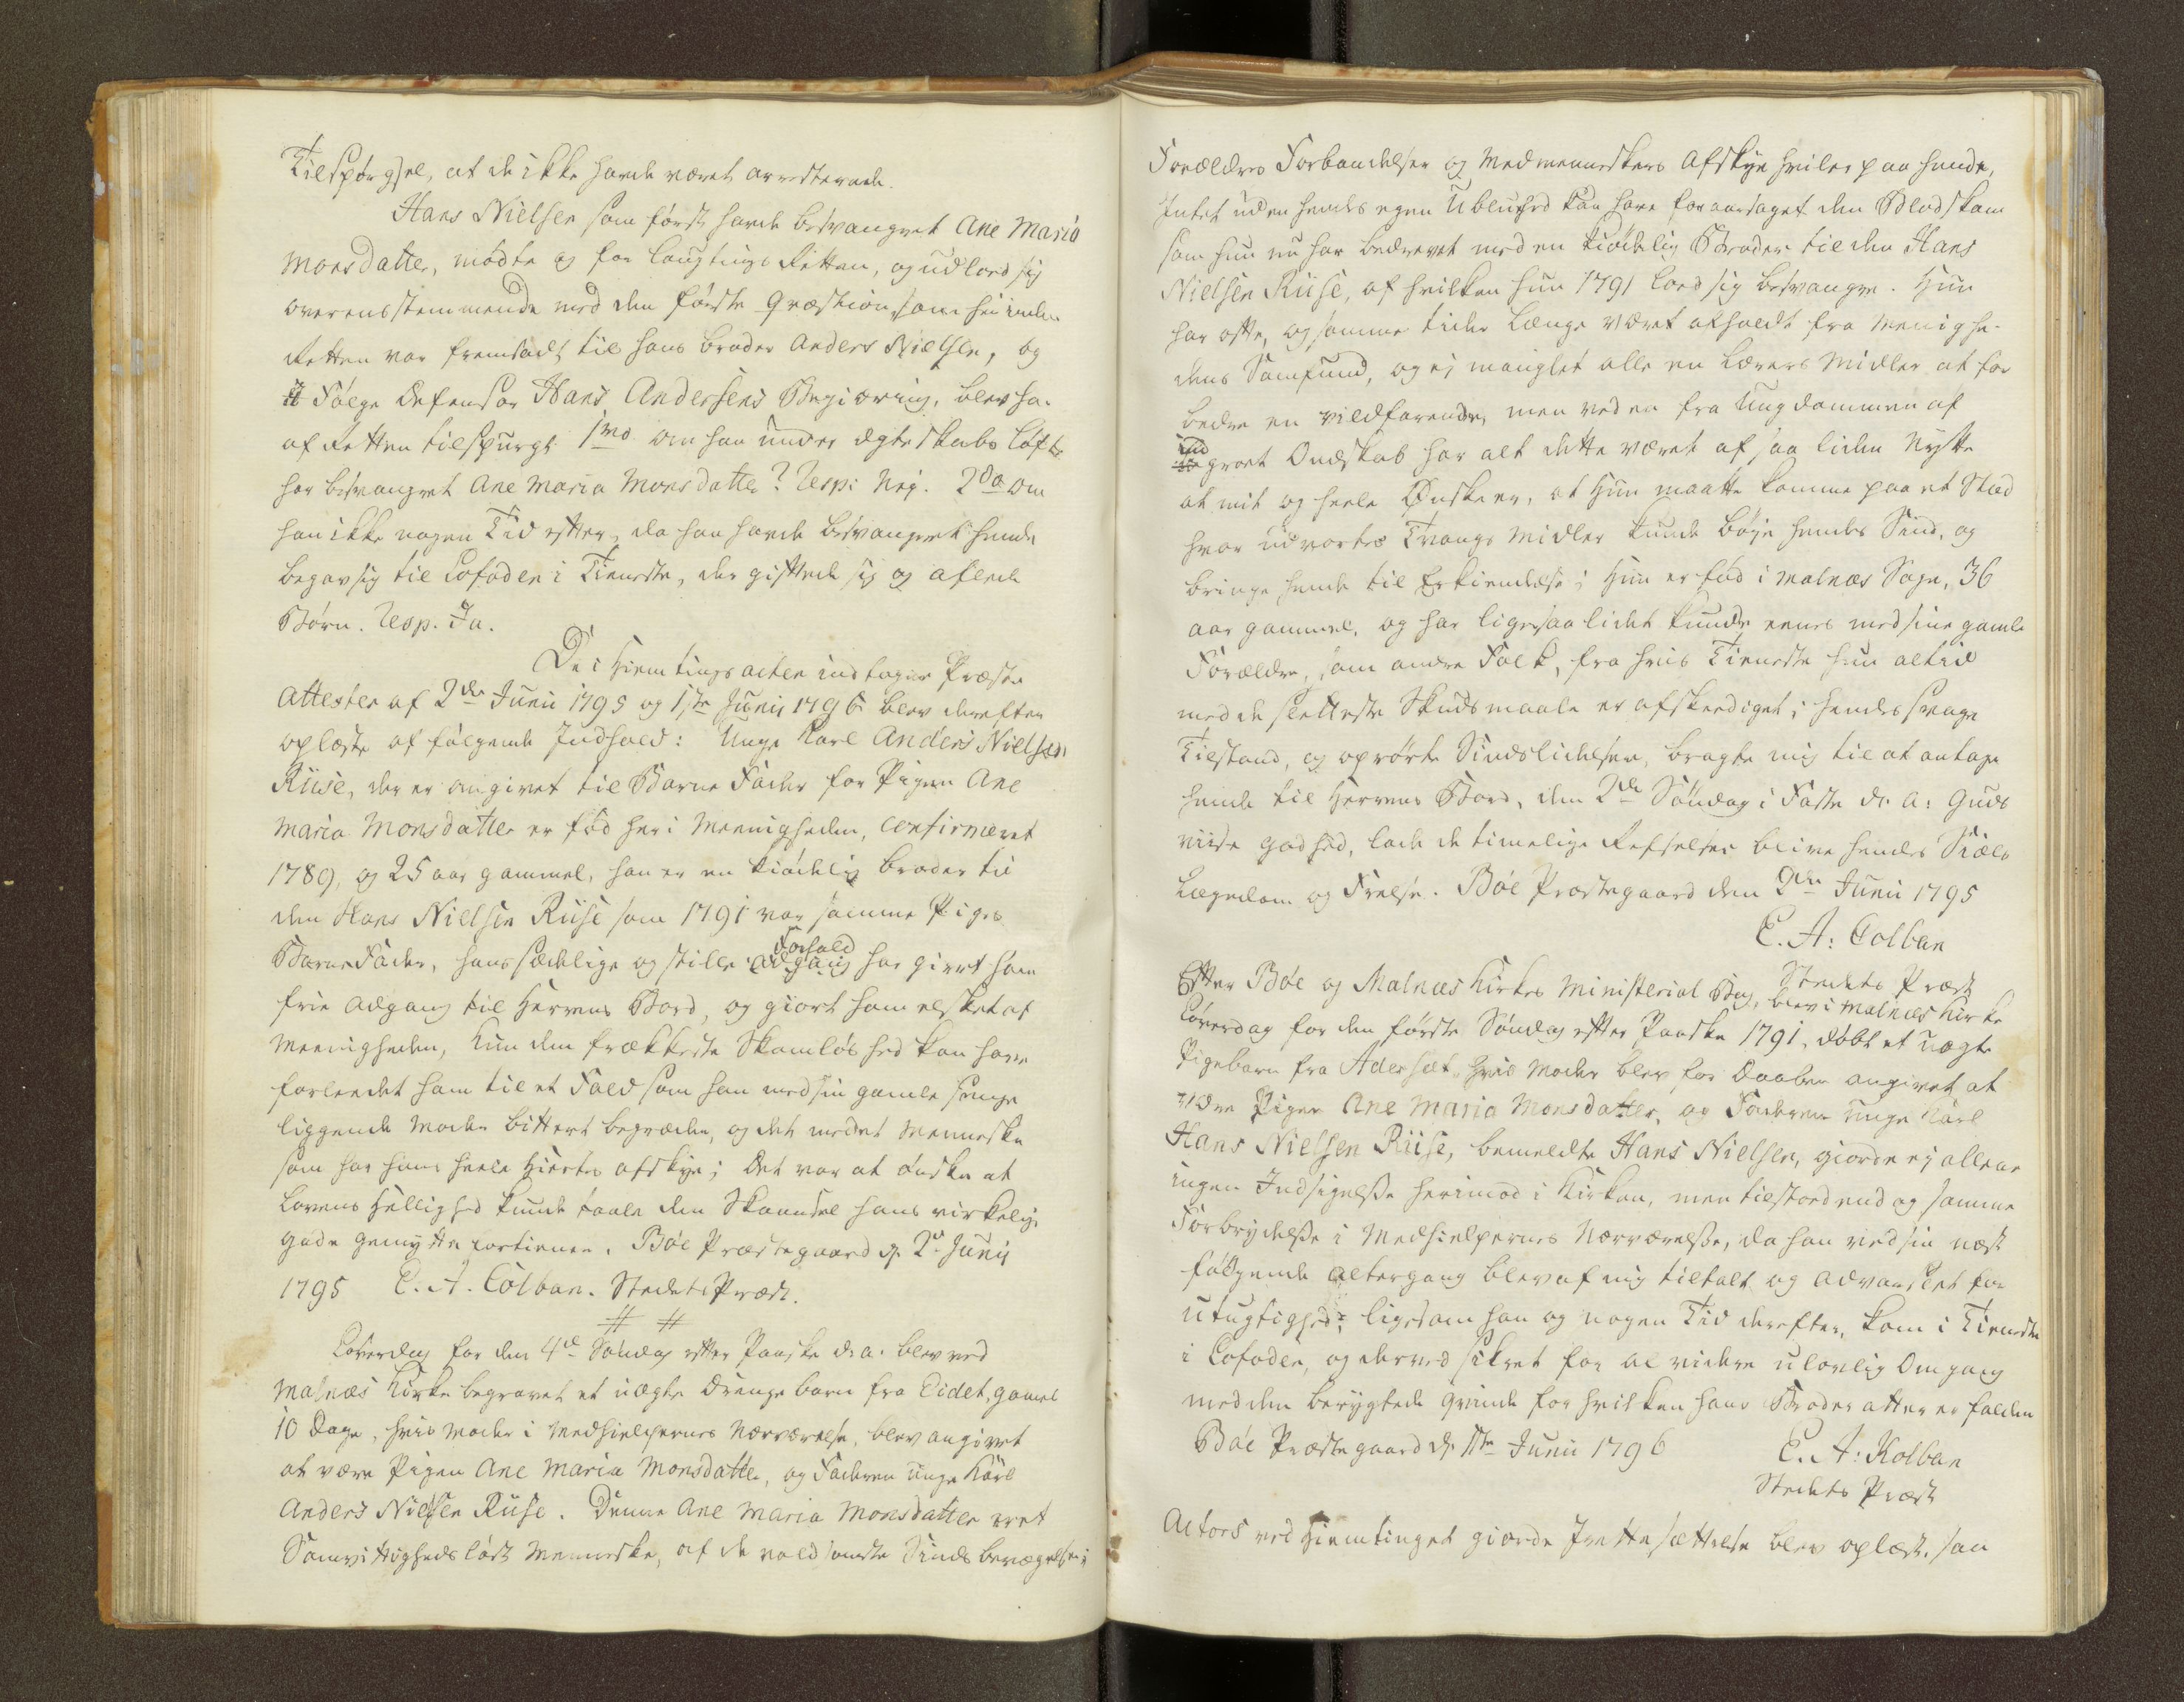 Tilspørgsel, at de ikke havde været arresterede.
Hans Nielsen som først havde besvangret Ane Maria
Monsdatter, mødte og for laugtings Retten, og udlod sig
overensstemmende med den første Qvæstion, som hiinden
Retten var fremsadt til hans broder Anders Nielsen, og
Følge Defensor Hans Andersens Begiæring, blev ha-
af Retten tilspurgt 1mo om han under ægteskabs løfte
har besvangret Ane Maria Monsdatter? Resp: Neÿ. 2do om
han ikke nogen Tid efter, da han havde besvangret hende
begav sig til Lofoden i Tieneste, der giftede sig og aflede
Børn. Resp. Ja.
De i Hiemtings acten indtagne Præste
Attester af 2den Junii 1795 og 1ste Junij 1796 blev derefter
oplæste af følgende Indhold: Unge Karl Anders Nielsen
Riise, der er angivet til Barne Fader for Pigen Ane
Maria Monsdatter er fød her i Meenigheden, confirmeret
1789, og 25 aar gammel, han er en kiødelig broder til
den Hans Nielsen Riise som 1791 var samme Piges
Barnefader, hans sædelige og stille Forhold har givet ham
frie adgang til Herrens Bord, og giort ham elsket af
Meenigheden, kun den frækkeste Skamløshed kan have
forleedet ham til et Fald som han med sin gamle senge
liggende Moder bittert begræder, og det med et Menneske
som har hans heele Hiertes afskye; Det var at ønske at
Lovens Hellighed kunde taale den Skaansel hans virkelig
gode Gemytte fortiener. Bøe Præstegaard d. 2d Junij
1795 E. A. Colban. Stedets Præst.
# #
Løverdag for den 4de Søndag efter Paaske d: a: blev ved
Malnæs Kirke begravet et uægte Drenge barn fra Eidet, gamel
10 Dage, hvis Moder i Medhielpernes Nærværelse, blev angivet
at være Pigen Ane Maria Monsdatter, og Faderen unge Karl
Anders Nielsen Riise. Denne Ane Maria Monsdatter er et
Samvittighedsløst Menneske, af de voldsomste Sindsbevægelser;
Forældres Forbandelser og Medmenneskers Afskye hviler paa hende,
Intet uden hendes egen Ublue hed kan have foraarsaget den Blodskam
som hun nu har bedrevet med en kiødelig Broder til den Hans
Nielsen Riise, af hvilken hun 1791 lod sig besvangre. Hun
har ofte, og somme tider længe været afholdt fra Menighe-
dens Samfund, og ej manglet alle en Lærers Midler at for
bedre en vildfarende, men ved en fra Ungdommen af
ind
groet Ondskab har alt dette været af saa liden Nytte
at mit og heele Ønske er, at Hun maatte komme paa et Stæd
hvor udvortes Tvangs Midler kunde bøje hendes Sind, og
bringe hende til Erkiendelse; Hun er fød i Malnæs Sogn, 36
aar gammel, og har ligesaa lidet kundet eenes med sine gamle
Forældre, som andre Folk, fra hvis Tieneste hun altid
med de sletteste Skudsmaale er afskediget; hendes svage
Tilstand, og oprørte Sindslidelser, bragte mig til at antage
hende til Herrens Bord, den 2de Søndag i Faste d: a: Guds
viise Godhed, lade de timelige Refselser blive hendes Siæls
Lægedom og Frelse. Bøe Præstegaard den 2den Junii 1795
E. A: Colban
Stedets Præst
Efter Bøe og Malnæs Kirkes Ministerial Bog, blev i Malnæs Kirke
Løverdag for den første Søndag efter Paaske 1791, døbt et uægte
Pigebarn fra Adersæt hvis Moder blev for Daaben angivet at
være Pigen Ane Maria Monsdatter, og Faderen unge Karl
Hans Nielsen Riise, bemeldte Hans Nielsen, giorde ej alleene
ingen Indsigelse herimod i Kirken, men tilstoed end og samme
Forbrydelse i Medhielpernes Nærværelse, da han ved sin næst
følgende altergang blev af mig tiltalt og advarslet for
Utugtighed; ligesom han og nogen Tid derefter, kom i Tieneste
i Lofoden, og derved sikret for al videre ulovlig Omgang
med den berygtede Qvinde for hvilken hans Broder atter er falden
Bøe Præstegaard d. 1ste Junii 1796 E. A: Kolban
Stedets Præst
Actors ved Hiemtinget giorde Irettesættelse blev oplæst, saa